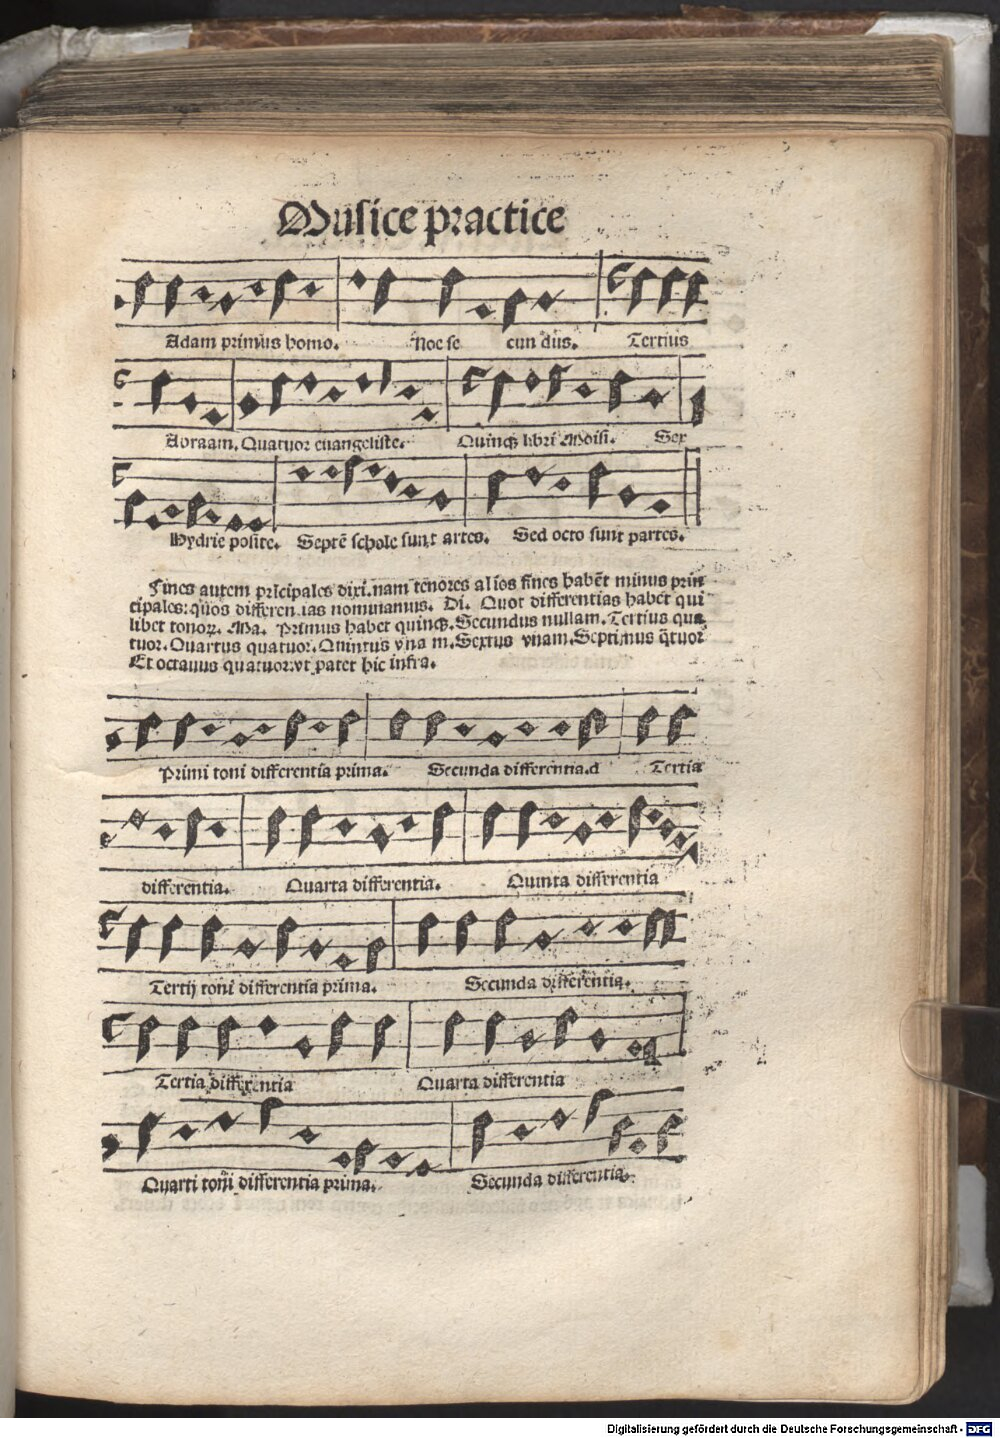 Musice practice
Adam primus homo. Noe se cun dus. Tertius
Abraam. Quatuor euangeliste. Quinqꝫ libri Moisi. Sex
Hydrie posite. Septē schole sunt artes. Sed octo sunt partes.
Fines autem prīcipales dixi. nam tenores alios fines habēt minus prin
cipales: quos differentias nominamus. Di. Quot differentias habet qui
libet tonoꝝ. Ma. Primus habet quinqꝫ. Secundus nullam. Tertius qua
tuor. Quartus quatuor. Quintus vnam. Sextus vnam. Septimus q̄tuor
Et octauus quatuor: vt patet hic infra.
Primi toni differentia prima. Secunda differentia.d Tertia
differentia. Quarta differentia. Quinta differentia
Tertij toni differentia prima. Secunda differentia.
Tertia differentia Quarta differentia
Quarti toni differentia prima. Secunda differentia.
Digitalisierung gefördert durch die Deutsche Forschungsgemeinschaft - DFG